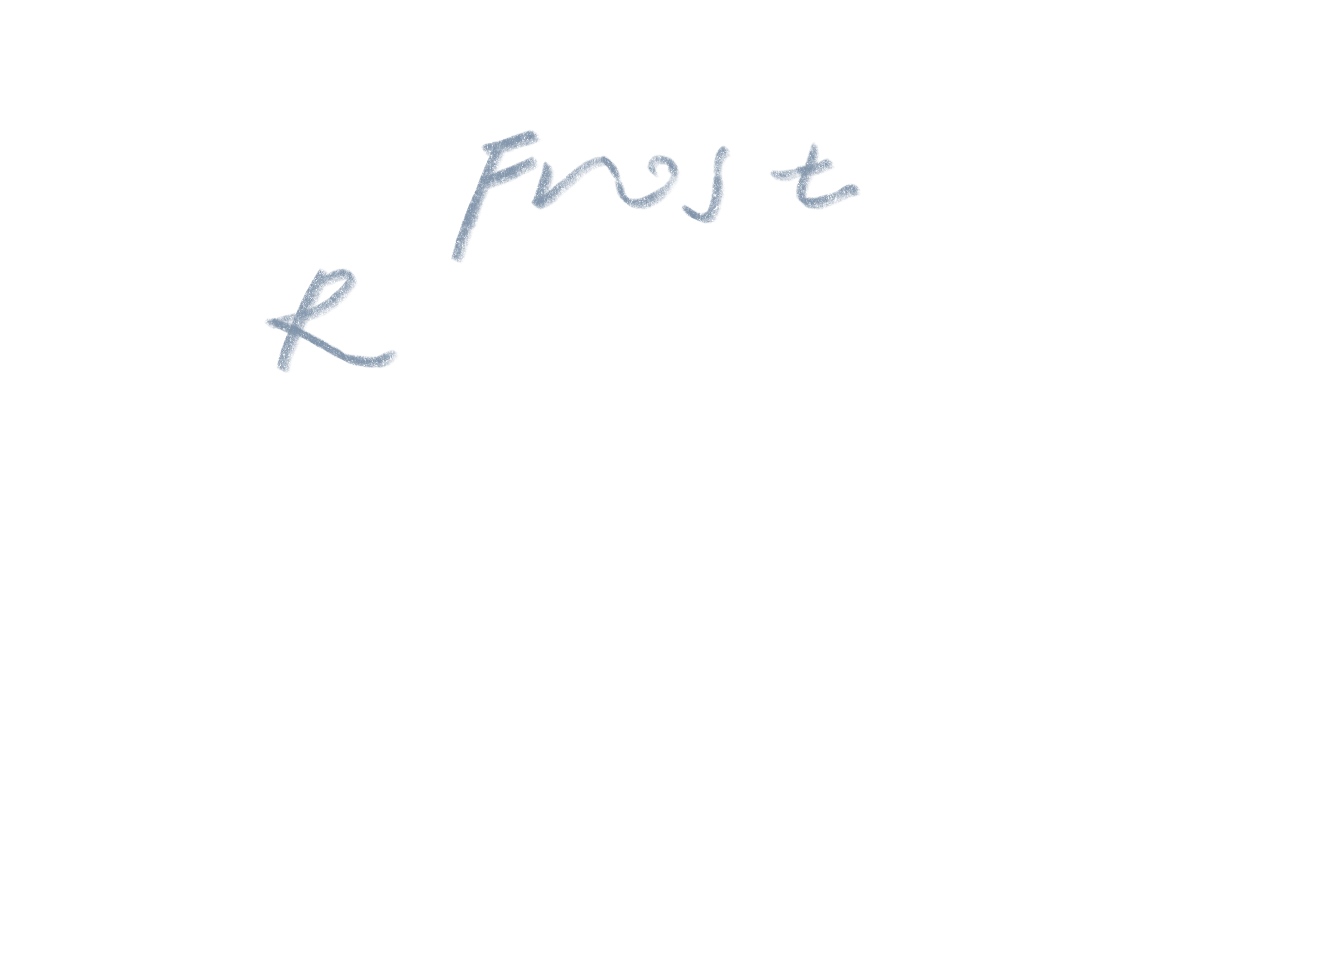 Frost
R